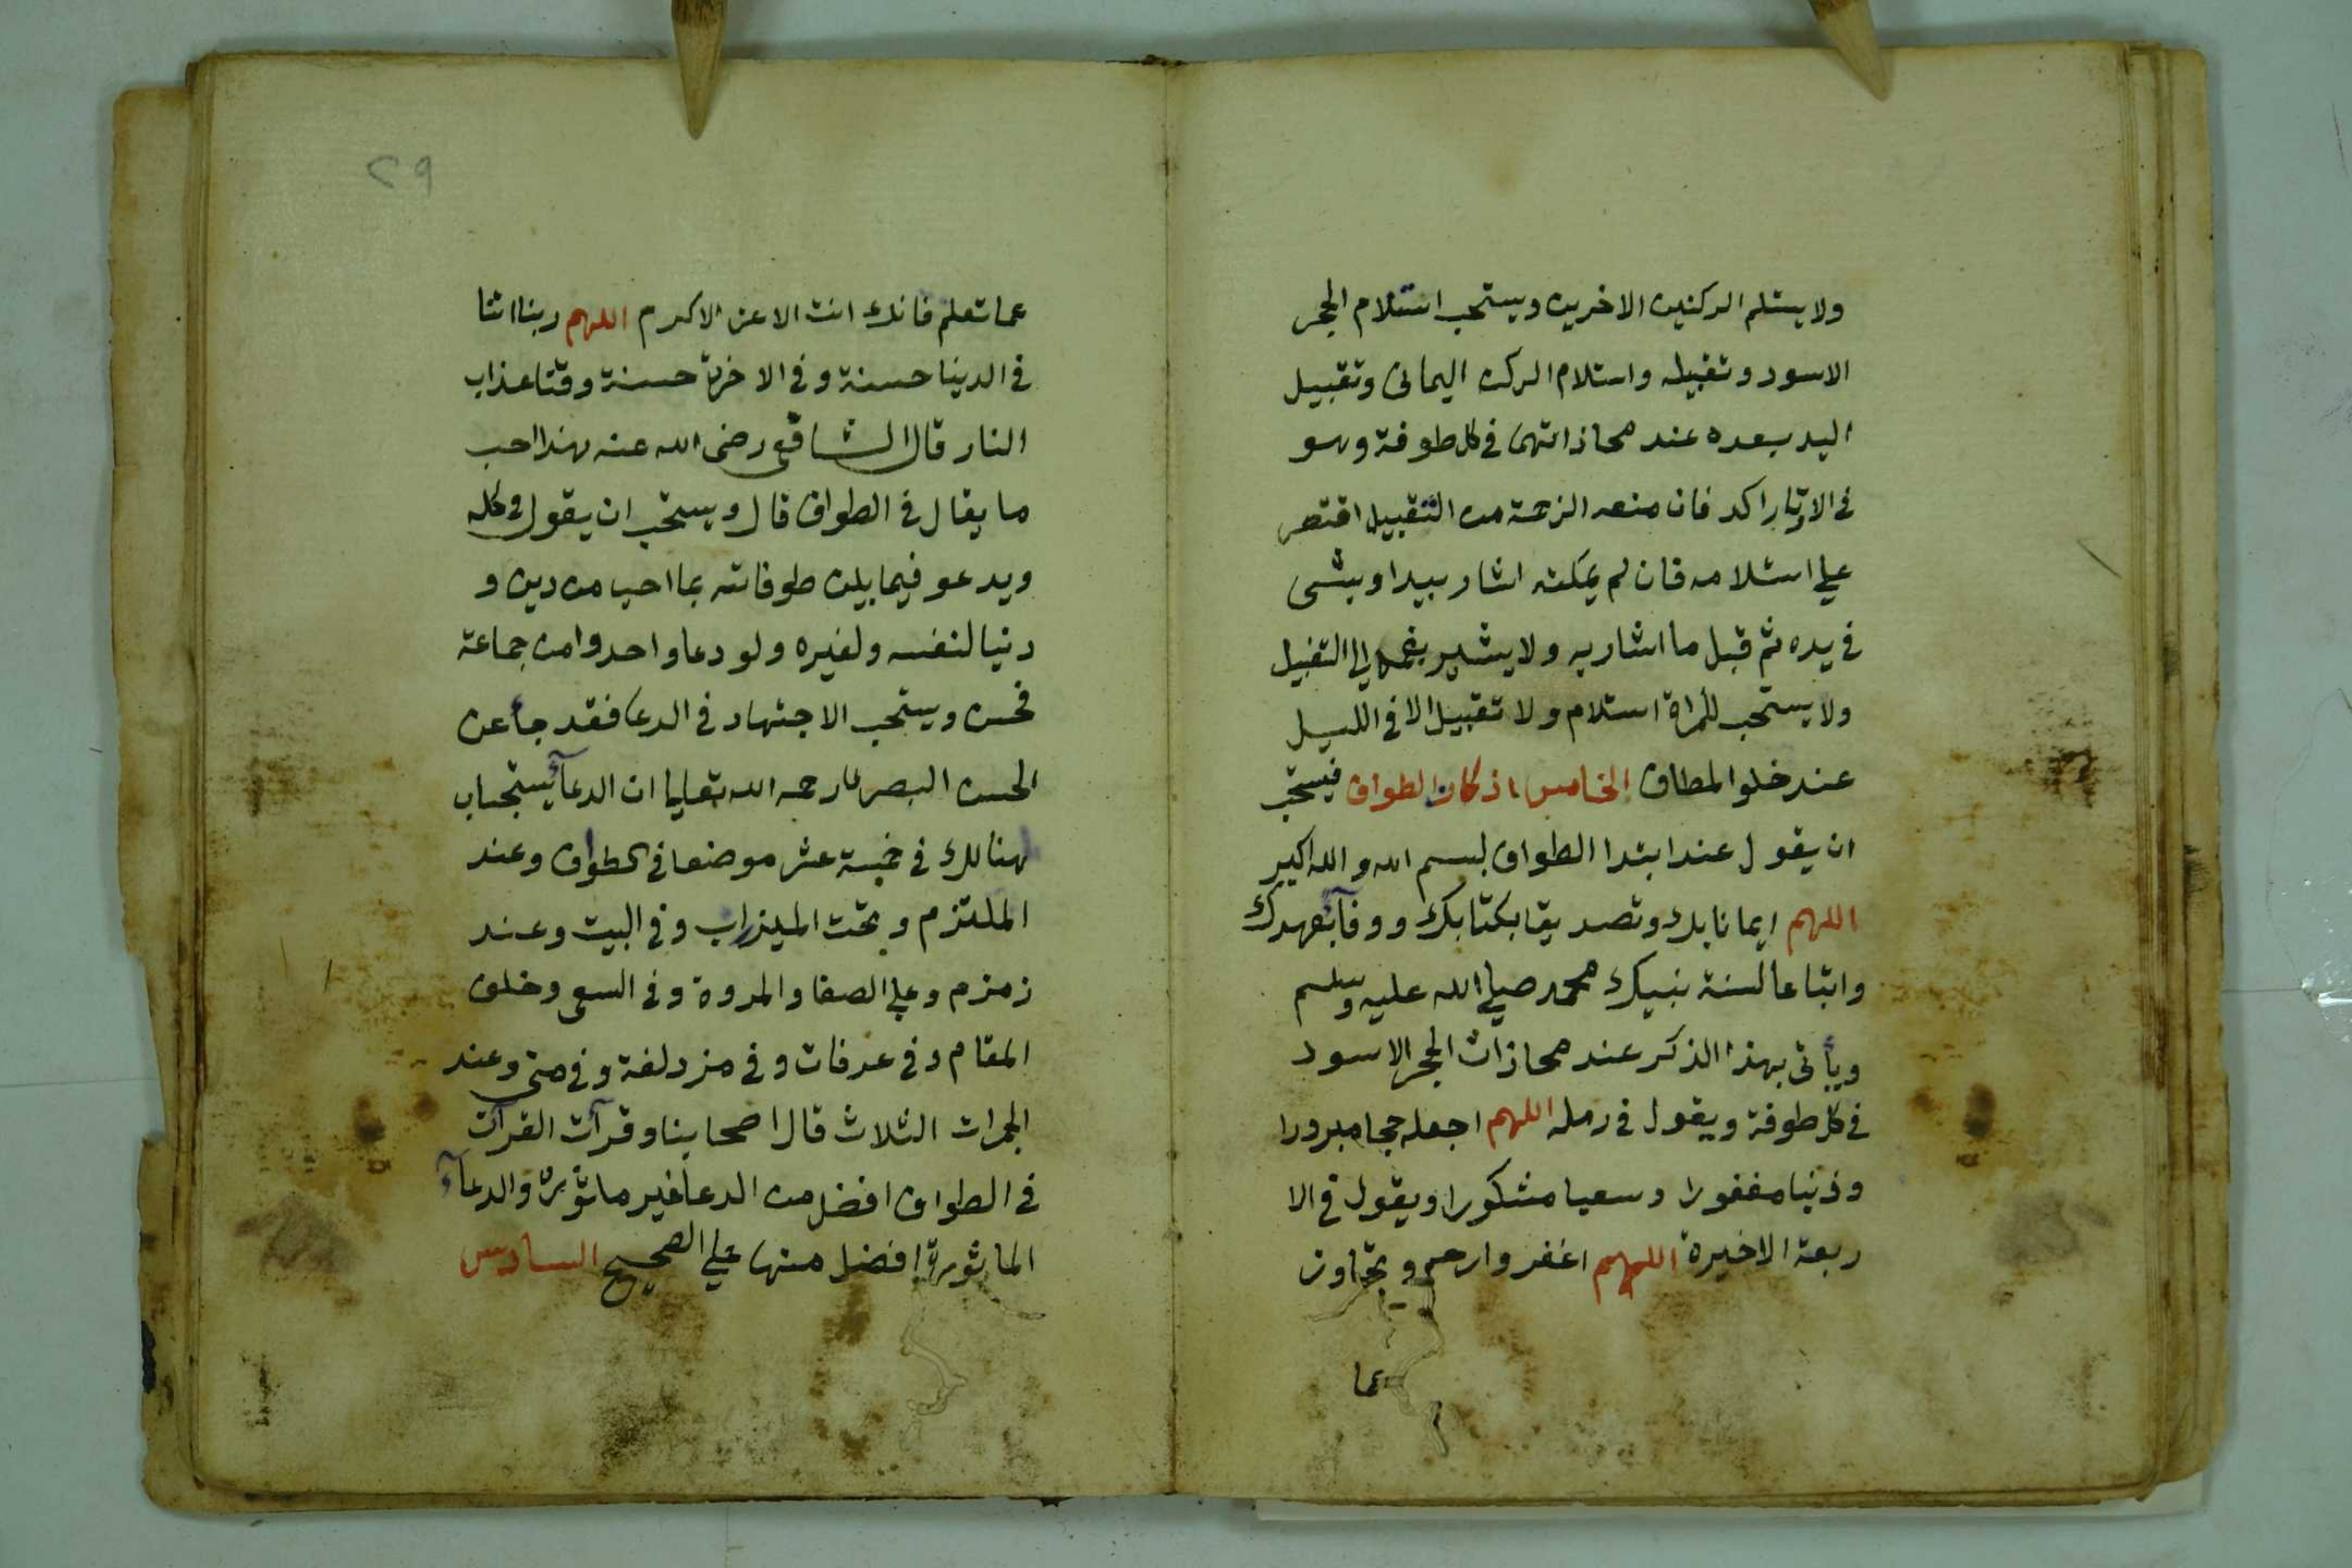 ولا يستلم الركنين الاخرين ويستحب استلام الحجر
الاسود وتقبيله واستلام الركن اليمانى وتقبيل
اليد بعده عند محاذاتهما فى كل طوفة وهو
فى الاوتار اكد فان منعه الزحمة من التقبيل اقتصر
على استلامه فان لم يمكنه اشار بيد او بشى
فى يده ثم قبل ما اشار به ولا يشير بفمه الى التقبيل
ولا يستحب للمراة استلام ولا تقبيل الا فى الليل
عند خلو المطاف الخامس اذكار الطواف فيستحب
ان يقول عند ابتدا الطواف بسم الله والله اكبر
اللهم ايمانا بك وتصديقا بكتابك ووفآء بعهدك
واتباعا لسنة نبيك محمد صلى الله عليه وسلم
ويأتى بهذا الذكر عند محاذات الحجر الاسود
فى كل طوفة ويقول فى رمله اللهم اجعله حجا مبرورا
وذنبا مغفورا وسعيا مشكورا ويقول فى الا
ربعة الاخيرة اللهم اغفر وارحم وتجاوز
عما
٢٩
عما تعلم فانك انت الاعز الاكرم اللهم ربنا اتنا
فى الدنيا حسنة وفى الاخرة حسنة وقنا عذاب
النار قال الشافعى رضى الله عنه هذا احب
ما يقال فى الطواف قال ويستحب ان يقول فى كله
ويدعو فيما بين طوفاته بما احب من دين و
دنيا لنفسه ولغيره ولو دعا واحد وامن جماعة
فحسن ويستحب الاجتهاد فى الدعا فقد جأ عن
الحسن البصرى رحمه الله تعالى ان الدعآء يستجاب
هنالك فى خمسة عشر موضعا فى الطواف وعند
الملتزم وتحت الميزاب وفى البيت وعند
زمزم وعلى الصفا والمروة وفى السعى وخلف
المقام وفى عرفات وفى مزدلفة وفى منى وعند
الجمرات الثلاث قال اصحابنا وقرآت القرآن
فى الطواف افضل من الدعا غير ماثورة والدعآء
الماثورة افضل منها على الصحيح السادس